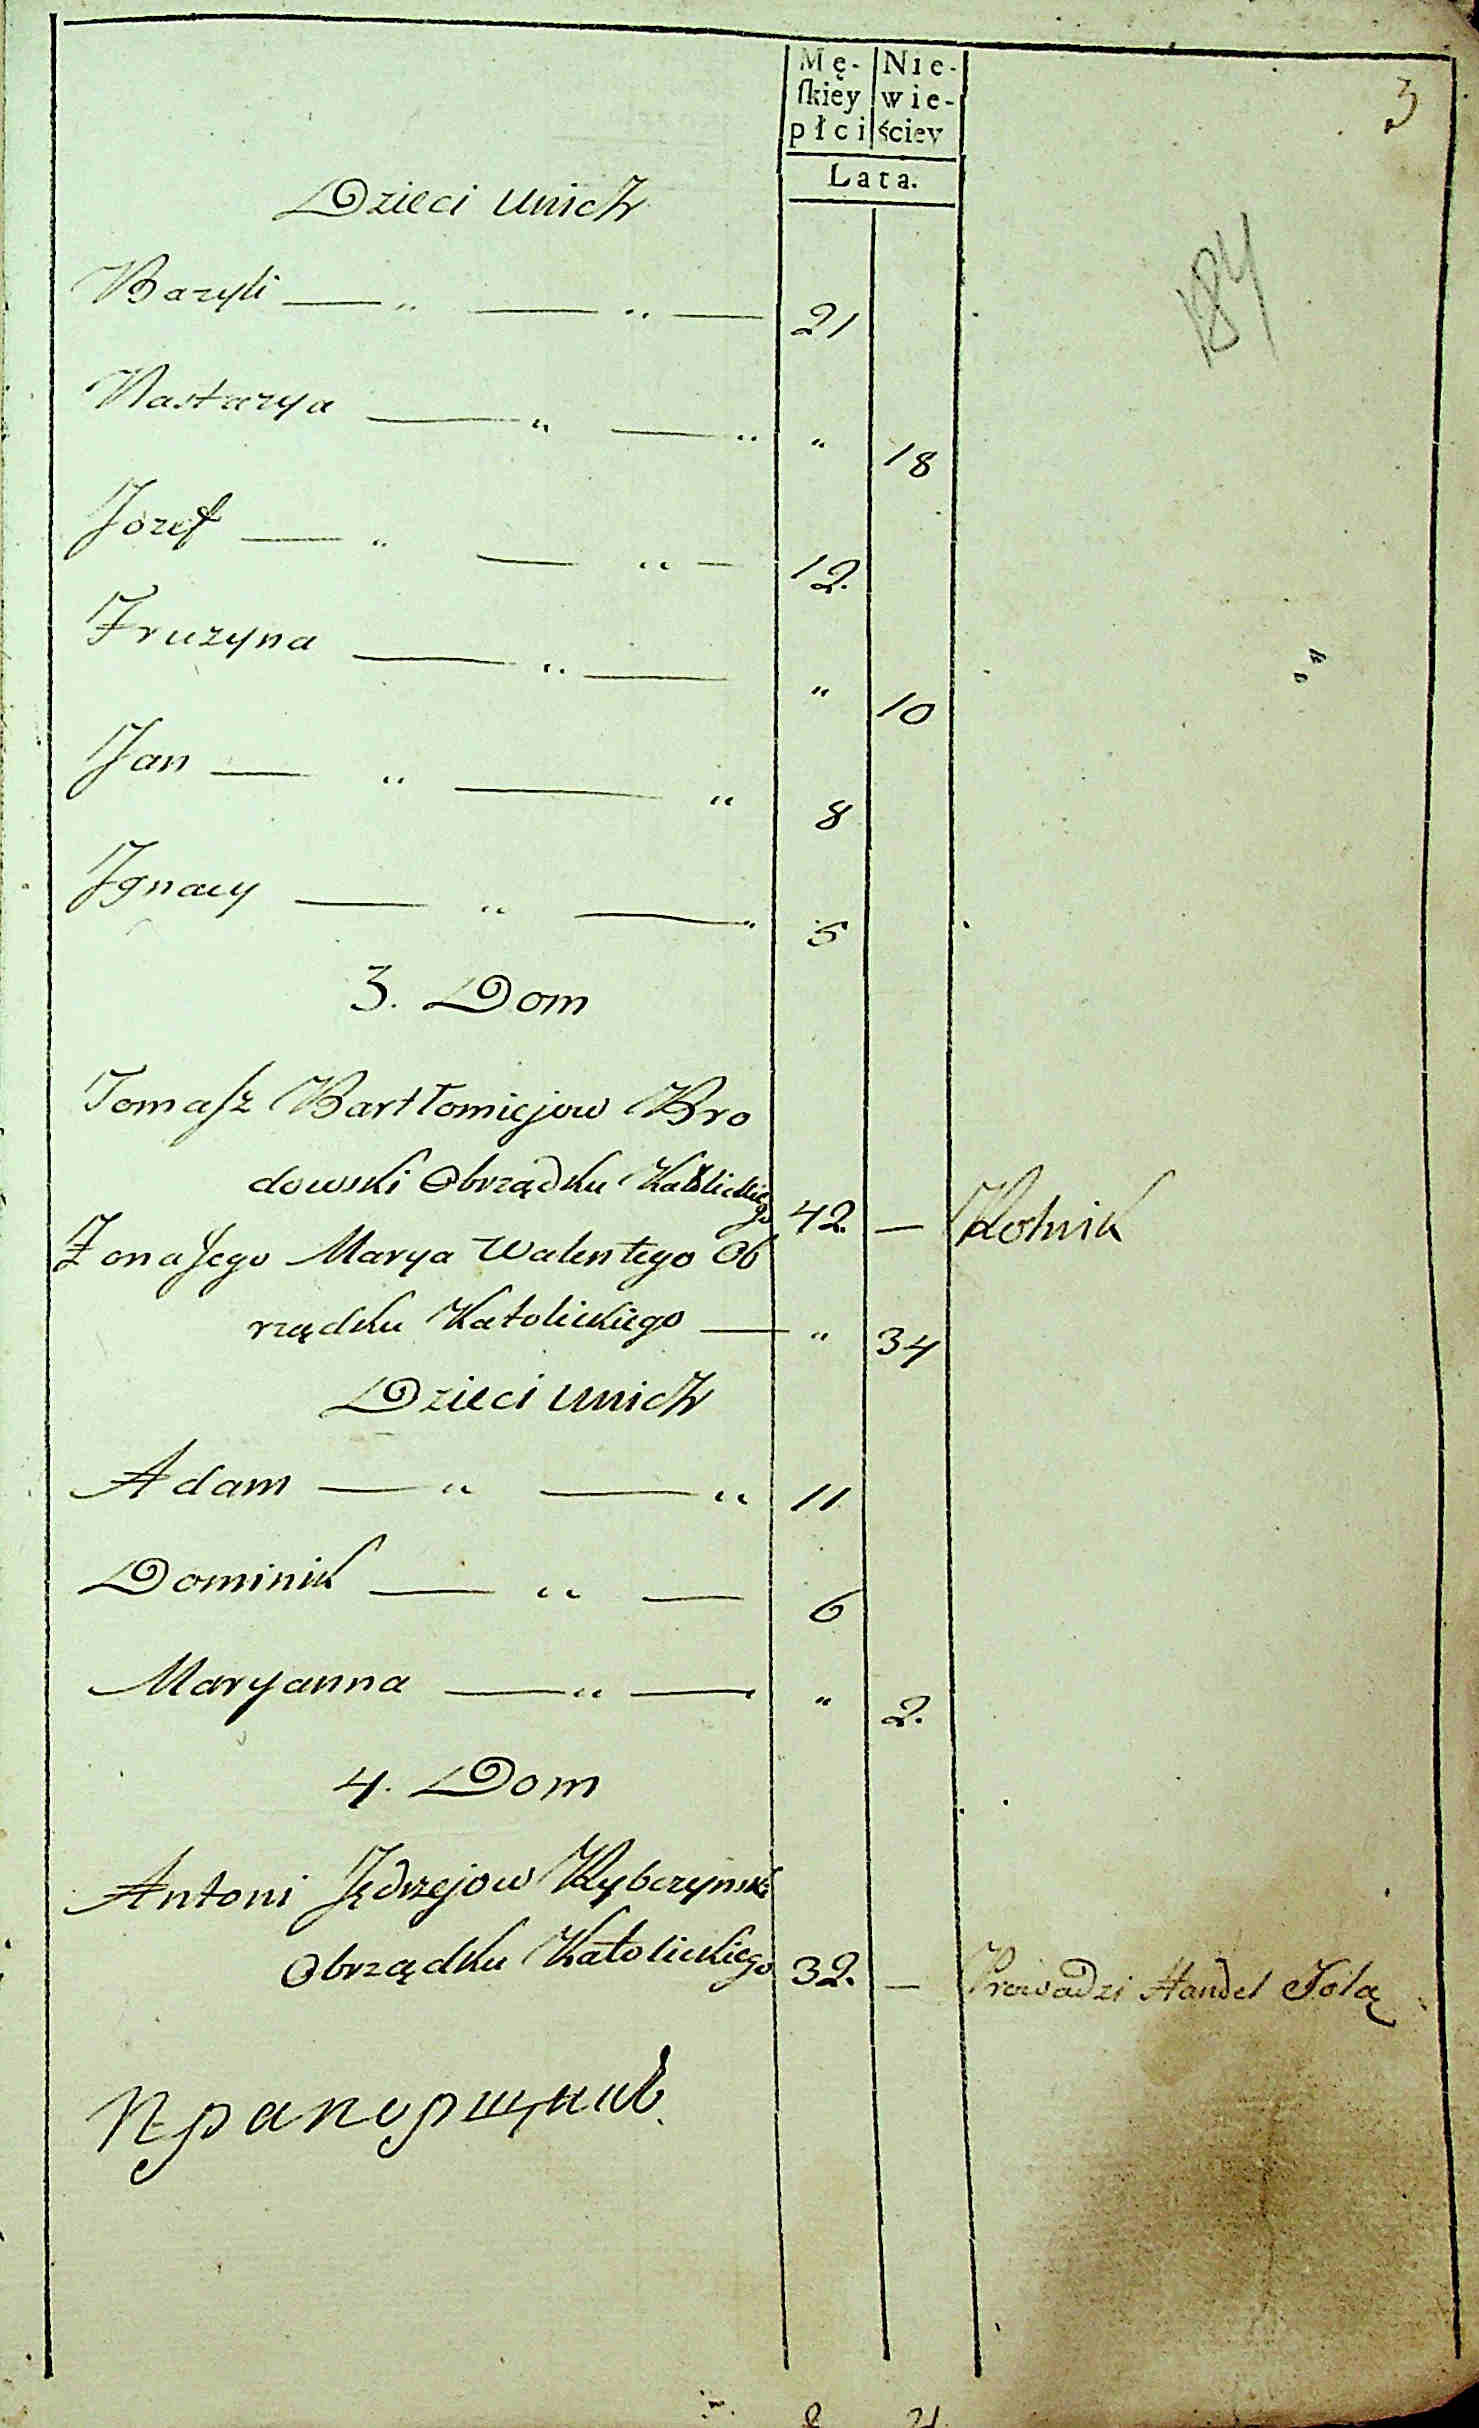 Mę- Nie-
ſkiey wie-
płci ściey
3
Lata.
Dzieci unich
184
Bazyli — „ — „ — 21
Nastazya — „ — „ „ 18
Jozef — „ — „ — 12.
Fruzyna — „ — „ 10
Jan — „ — „ 8
Ignacy — „ — 5
3. Dom
Tomaſz Bartłomiejow Bro
dowski Obrządku Katolickie
go 42. — Rolnik
Żona Jego Marya Walentego Ob
rządku Katolickiego — „ 34
Dzieci unich
Adam — „ — „ 11
Dominik — „ — 6
Maryanna — „ — „ 2.
4. Dom
Antoni Jędrzejow Rybczynski
Obrządku Katolickiego 32. — Prowadzi Handel Solą
Прапорщикъ
8 4